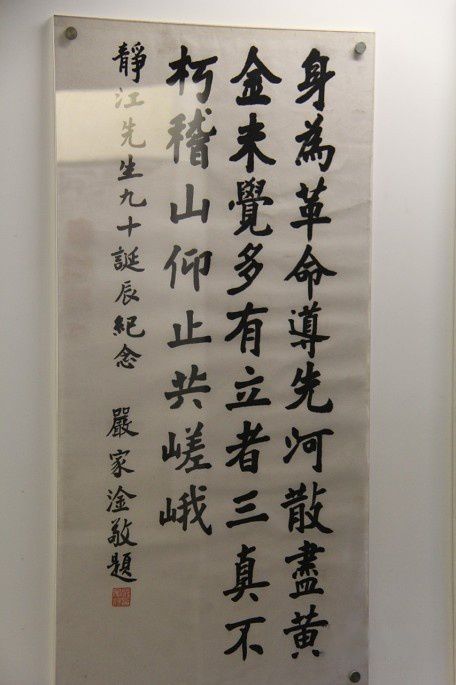 身為革命導先河散盡黃
金未覺多有立者三真不
朽稽山仰止共嵯峨
靜江先生九十誕辰紀念 嚴家淦敬題